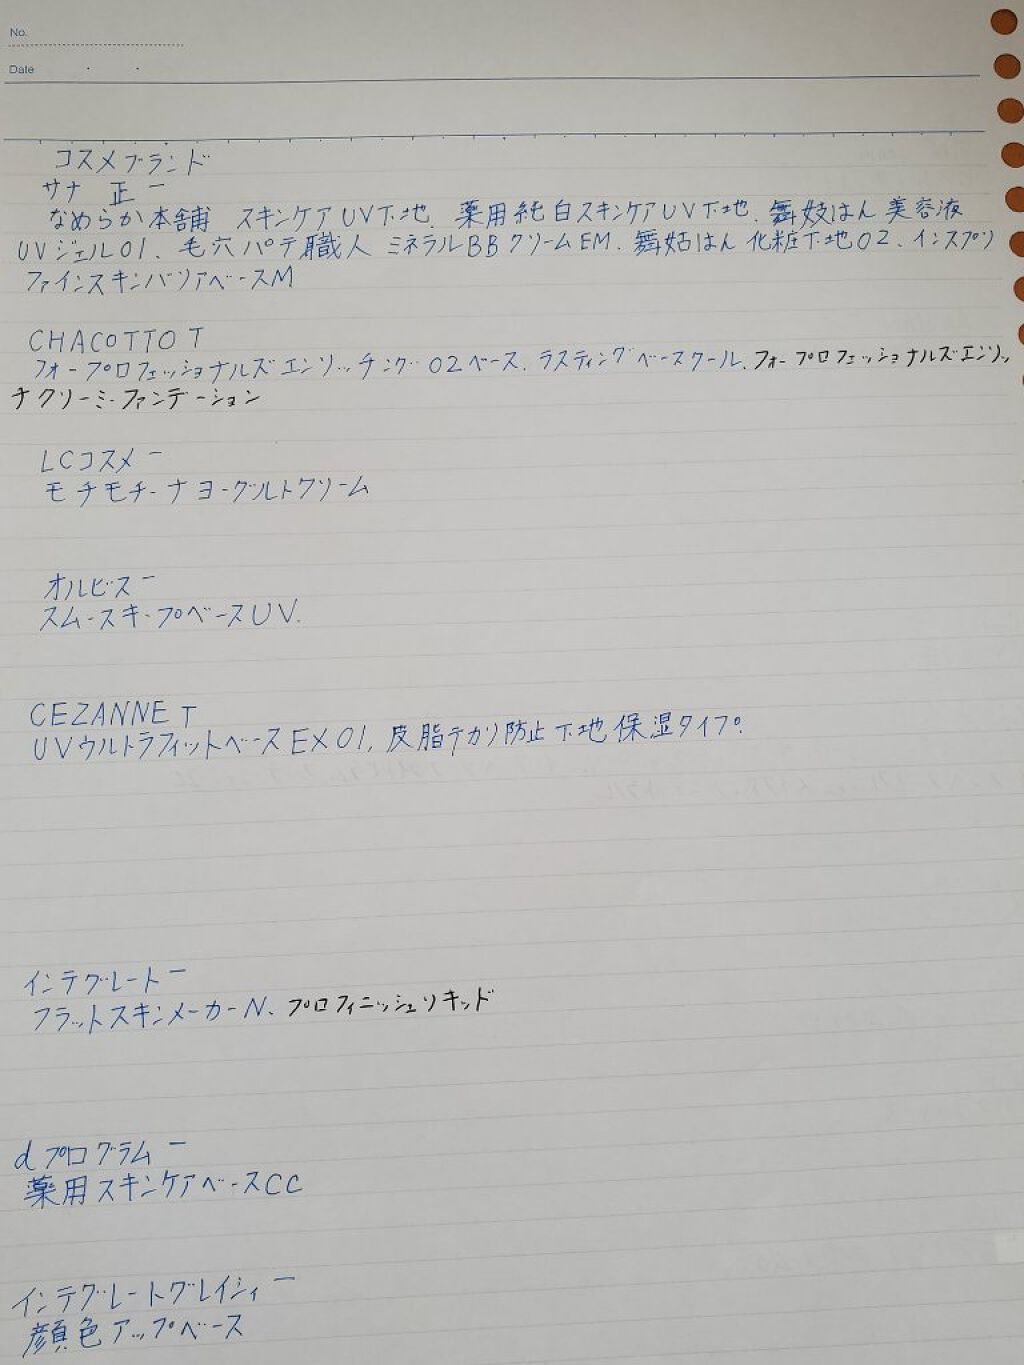 No.
Date
コスメブランド
サナ 正一
なめらか本舗 スキンケアUV下地、薬用純白スキンケアUV下地、舞妓はん美容液
UVジェル01、毛穴パテ職人 ミネラルBBクリームEM、舞妓はん化粧下地02、インスプリ
ファインスキンバリアベースM
CHACOTTO T
フォープロフェッショナルズエンリッチング02ベース、ラスティングベースクール、フォープロフェッショナルズエンリッ
チクリーミーファンデーション
LCコスメ 一
モチモチーナヨーグルトクリーム
オルビス 一
スムースキープベースUV.
CEZANNE T
UVウルトラフィットベースEX01, 皮脂テカリ防止下地保湿タイプ.
インテグレート 一
フラットスキンメーカーN、プロフィニッシュリキッド
dプログラム 一
薬用スキンケアベースCC
インテグレートグレイシィ 一
顔色アップベース